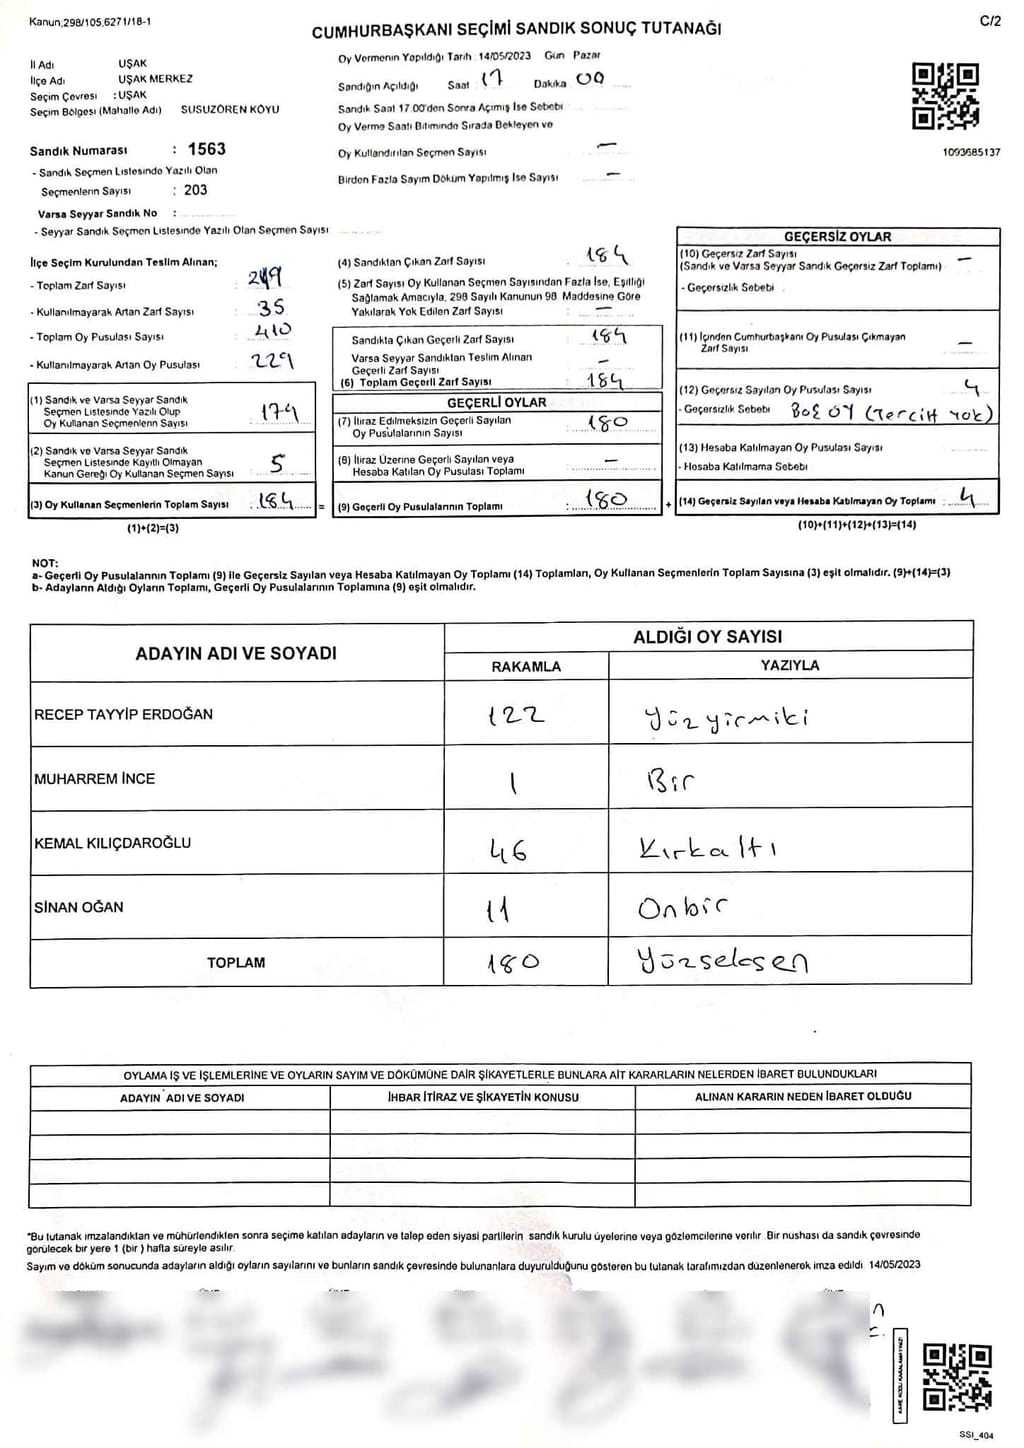 Kanun,298/105,6271/18-1
C/2
CUMHURBAŞKANI SEÇİMİ SANDIK SONUÇ TUTANAĞI
İl Adı UŞAK
İlçe Adı UŞAK MERKEZ
Seçim Çevresi : UŞAK
Seçim Bölgesi (Mahalle Adı) SUSUZÖREN KÖYÜ
Oy Vermenin Yapıldığı Tarih 14/05/2023 Gün Pazar
Sandığın Açıldığı Saat 17 Dakika 00
Sandık Saat 17 00'den Sonra Açımış İse Sebebi
Oy Verme Saati Bitiminde Sırada Bekleyen ve
Oy Kullandırılan Seçmen Sayısı —
Birden Fazla Sayım Döküm Yapılmış İse Sayısı —
1093685137
Sandık Numarası : 1563
- Sandık Seçmen Listesinde Yazılı Olan
Seçmenlerin Sayısı : 203
Varsa Seyyar Sandık No :
- Seyyar Sandık Seçmen Listesinde Yazılı Olan Seçmen Sayısı
İlçe Seçim Kurulundan Teslim Alınan;
- Toplam Zarf Sayısı : 219
- Kullanılmayarak Artan Zarf Sayısı : 35
- Toplam Oy Pusulası Sayısı : 410
- Kullanılmayarak Artan Oy Pusulası 229
(1) Sandık ve Varsa Seyyar Sandık
Seçmen Listesinde Yazılı Olup
Oy Kullanan Seçmenlerin Sayısı : 179
(2) Sandık ve Varsa Seyyar Sandık
Seçmen Listesinde Kayıtlı Olmayan
Kanun Gereği Oy Kullanan Seçmen Sayısı 5
(3) Oy Kullanan Seçmenlerin Toplam Sayısı : 184 =
(1)+(2)=(3)
(4) Sandıktan Çıkan Zarf Sayısı : 184
(5) Zarf Sayısı Oy Kullanan Seçmen Sayısından Fazla İse, Eşitliği
Sağlamak Amacıyla, 298 Sayılı Kanunun 98. Maddesine Göre
Yakılarak Yok Edilen Zarf Sayısı : —
Sandıkta Çıkan Geçerli Zarf Sayısı : 184
Varsa Seyyar Sandıktan Teslim Alınan
Geçerli Zarf Sayısı —
(6) Toplam Geçerli Zarf Sayısı : 184
GEÇERLİ OYLAR
(7) İtiraz Edilmeksizin Geçerli Sayılan
Oy Pusulalarının Sayısı : 180
(8) İtiraz Üzerine Geçerli Sayılan veya
Hesaba Katılan Oy Pusulası Toplamı : —
(9) Geçerli Oy Pusulalarının Toplamı : 180 +
GEÇERSİZ OYLAR
(10) Geçersiz Zarf Sayısı
(Sandık ve Varsa Seyyar Sandık Geçersiz Zarf Toplamı) —
- Geçersizlik Sebebi
(11) İçinden Cumhurbaşkanı Oy Pusulası Çıkmayan
Zarf Sayısı —
(12) Geçersiz Sayılan Oy Pusulası Sayısı 4
- Geçersizlik Sebebi BOŞ OY (Tercih yok)
(13) Hesaba Katılmayan Oy Pusulası Sayısı
- Hesaba Katılmama Sebebi
(14) Geçersiz Sayılan veya Hesaba Katılmayan Oy Toplamı : 4
(10)+(11)+(12)+(13)=(14)
NOT:
a- Geçerli Oy Pusulalarının Toplamı (9) ile Geçersiz Sayılan veya Hesaba Katılmayan Oy Toplamı (14) Toplamları, Oy Kullanan Seçmenlerin Toplam Sayısına (3) eşit olmalıdır. (9)+(14)=(3)
b- Adayların Aldığı Oyların Toplamı, Geçerli Oy Pusulalarının Toplamına (9) eşit olmalıdır.
ADAYIN ADI VE SOYADI ALDIĞI OY SAYISI
RAKAMLA YAZIYLA
RECEP TAYYİP ERDOĞAN 122 Yüzyirmiki
MUHARREM İNCE 1 Bir
KEMAL KILIÇDAROĞLU 46 Kırkaltı
SİNAN OĞAN 11 Onbir
TOPLAM 180 Yüzseksen
OYLAMA İŞ VE İŞLEMLERİNE VE OYLARIN SAYIM VE DÖKÜMÜNE DAİR ŞİKAYETLERLE BUNLARA AİT KARARLARIN NELERDEN İBARET BULUNDUKLARI
ADAYIN ADI VE SOYADI İHBAR İTİRAZ VE ŞİKAYETİN KONUSU ALINAN KARARIN NEDEN İBARET OLDUĞU
*Bu tutanak imzalandıktan ve mühürlendikten sonra seçime katılan adayların ve talep eden siyasi partilerin sandık kurulu üyelerine veya gözlemcilerine verilir. Bir nushası da sandık çevresinde
görülecek bir yere 1 (bir) hafta süreyle asılır.
Sayım ve döküm sonucunda adayların aldığı oyların sayılarını ve bunların sandık çevresinde bulunanlara duyurulduğunu gösteren bu tutanak tarafımızdan düzenlenerek imza edildi 14/05/2023
KARE KODU KARALAMAYINIZ!
SSI_404